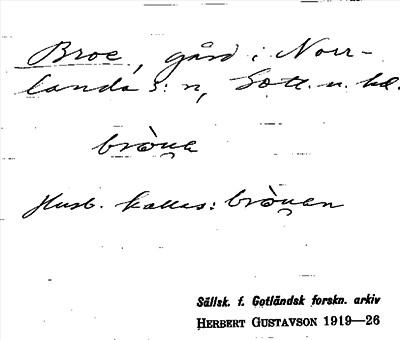 Broe, gård i Norr-
landa s:n, Gotl. n. hd.
bròu̯a
Husb. kallas: bròu̯en
Sällsk. f. Gotländsk forskn. arkiv
HERBERT GUSTAVSON 1919—26